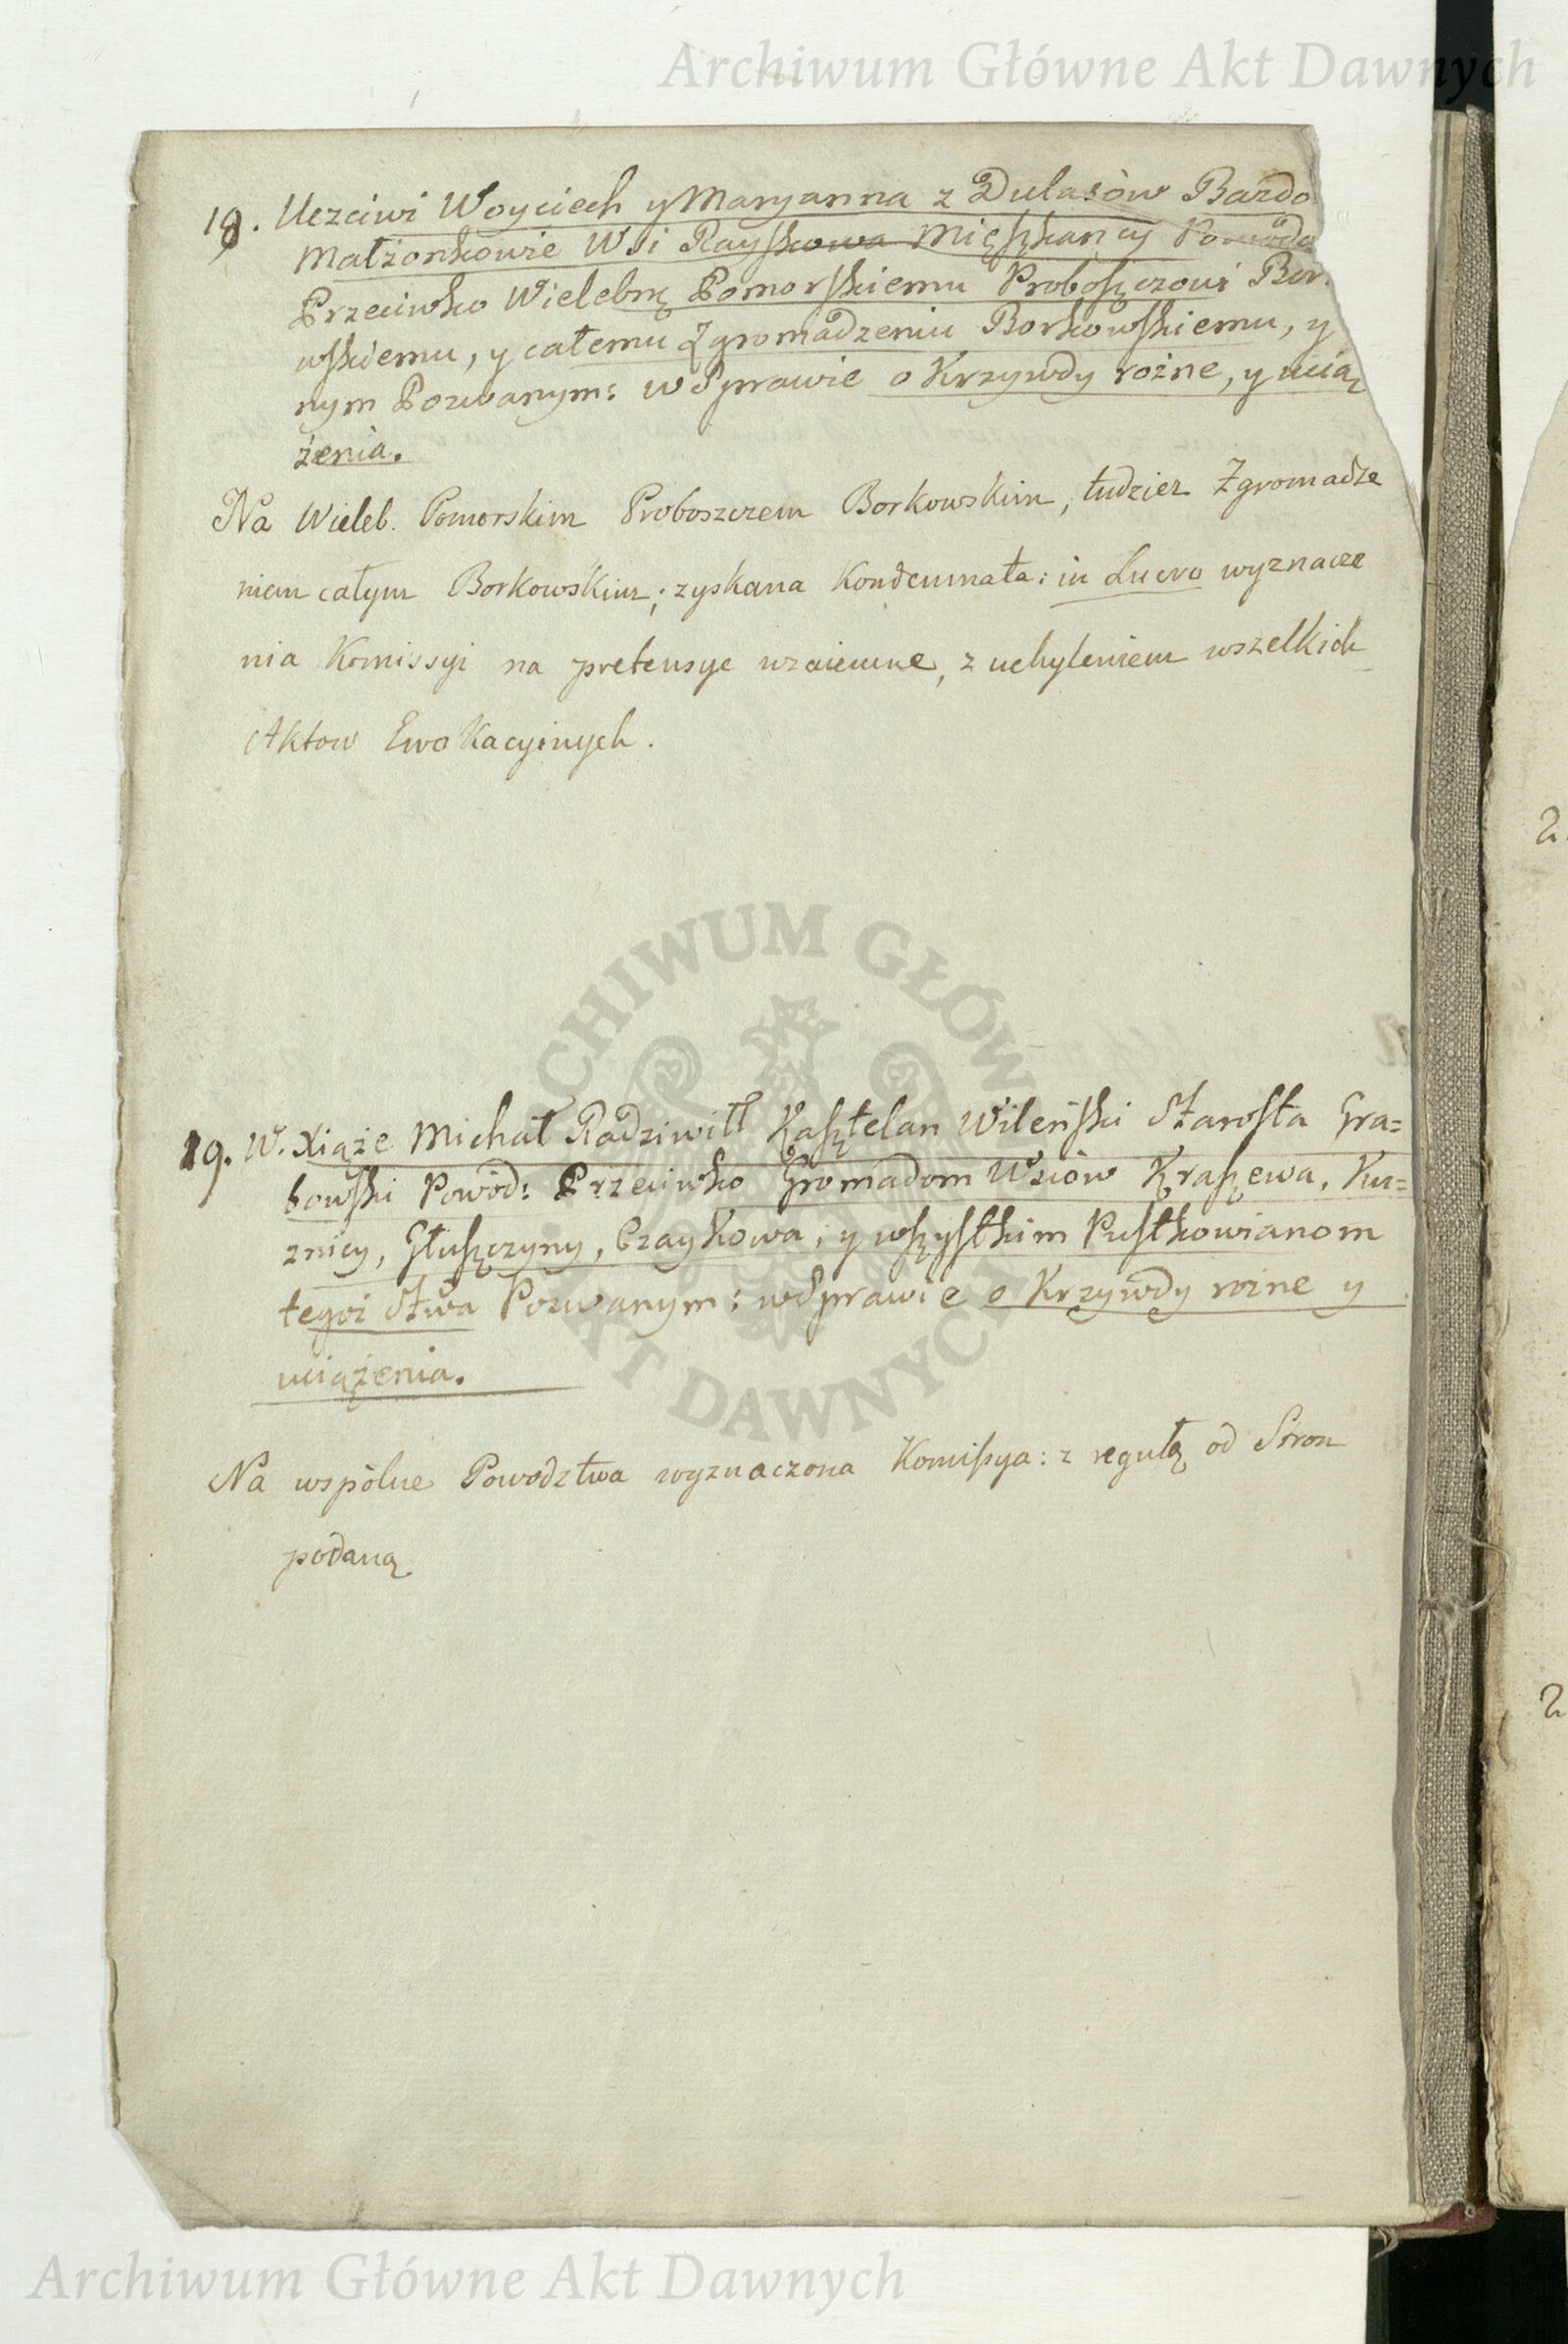 Archiwum Główne Akt Dawnych
18. Uczciwi Woyciech y Maryanna z Dulasów Bardo
Małżonkowie Wsi Rayskowa Mięszkancy Powoda
Przeciwko Wielebnę Pomorskiemu Proboszczowi Bor
wskiemu, y całemu Zgromadzeniu Borkowskiemu, y
nym Pozwanym: w Sprawie o Krzywdy rożne, y ucią
żenia.
Na Wieleb. Pomorskim Proboszczem Borkowskim, tudziez Zgromadze
niem całym Borkowskim; zyskana Kondemnata: in Lucro wyznacze
nia Komissyi na pretensye wzaiemne, z uchyleniem wszelkich
Aktow Ewokacyinych.
ARCHIWUM GŁÓWNE AKT DAWNYCH
19. W. Xiąże Michał Radziwiłł Kasztelan Wileński Starosta Gra=
bowski Powód: Przeciwko Gromadom Wsiów Kraszewa, Ku=
znicy, Głuszczyny, Czaykowa, y wszystkim Pustkowianom
tegoż Stwa Pozwanym: w Sprawie o Krzywdy rożne y
uciążenia.
Na wspólne Powodztwa wyznaczona Komissya: z regułą od Stron
podaną
2
2
Archiwum Główne Akt Dawnych